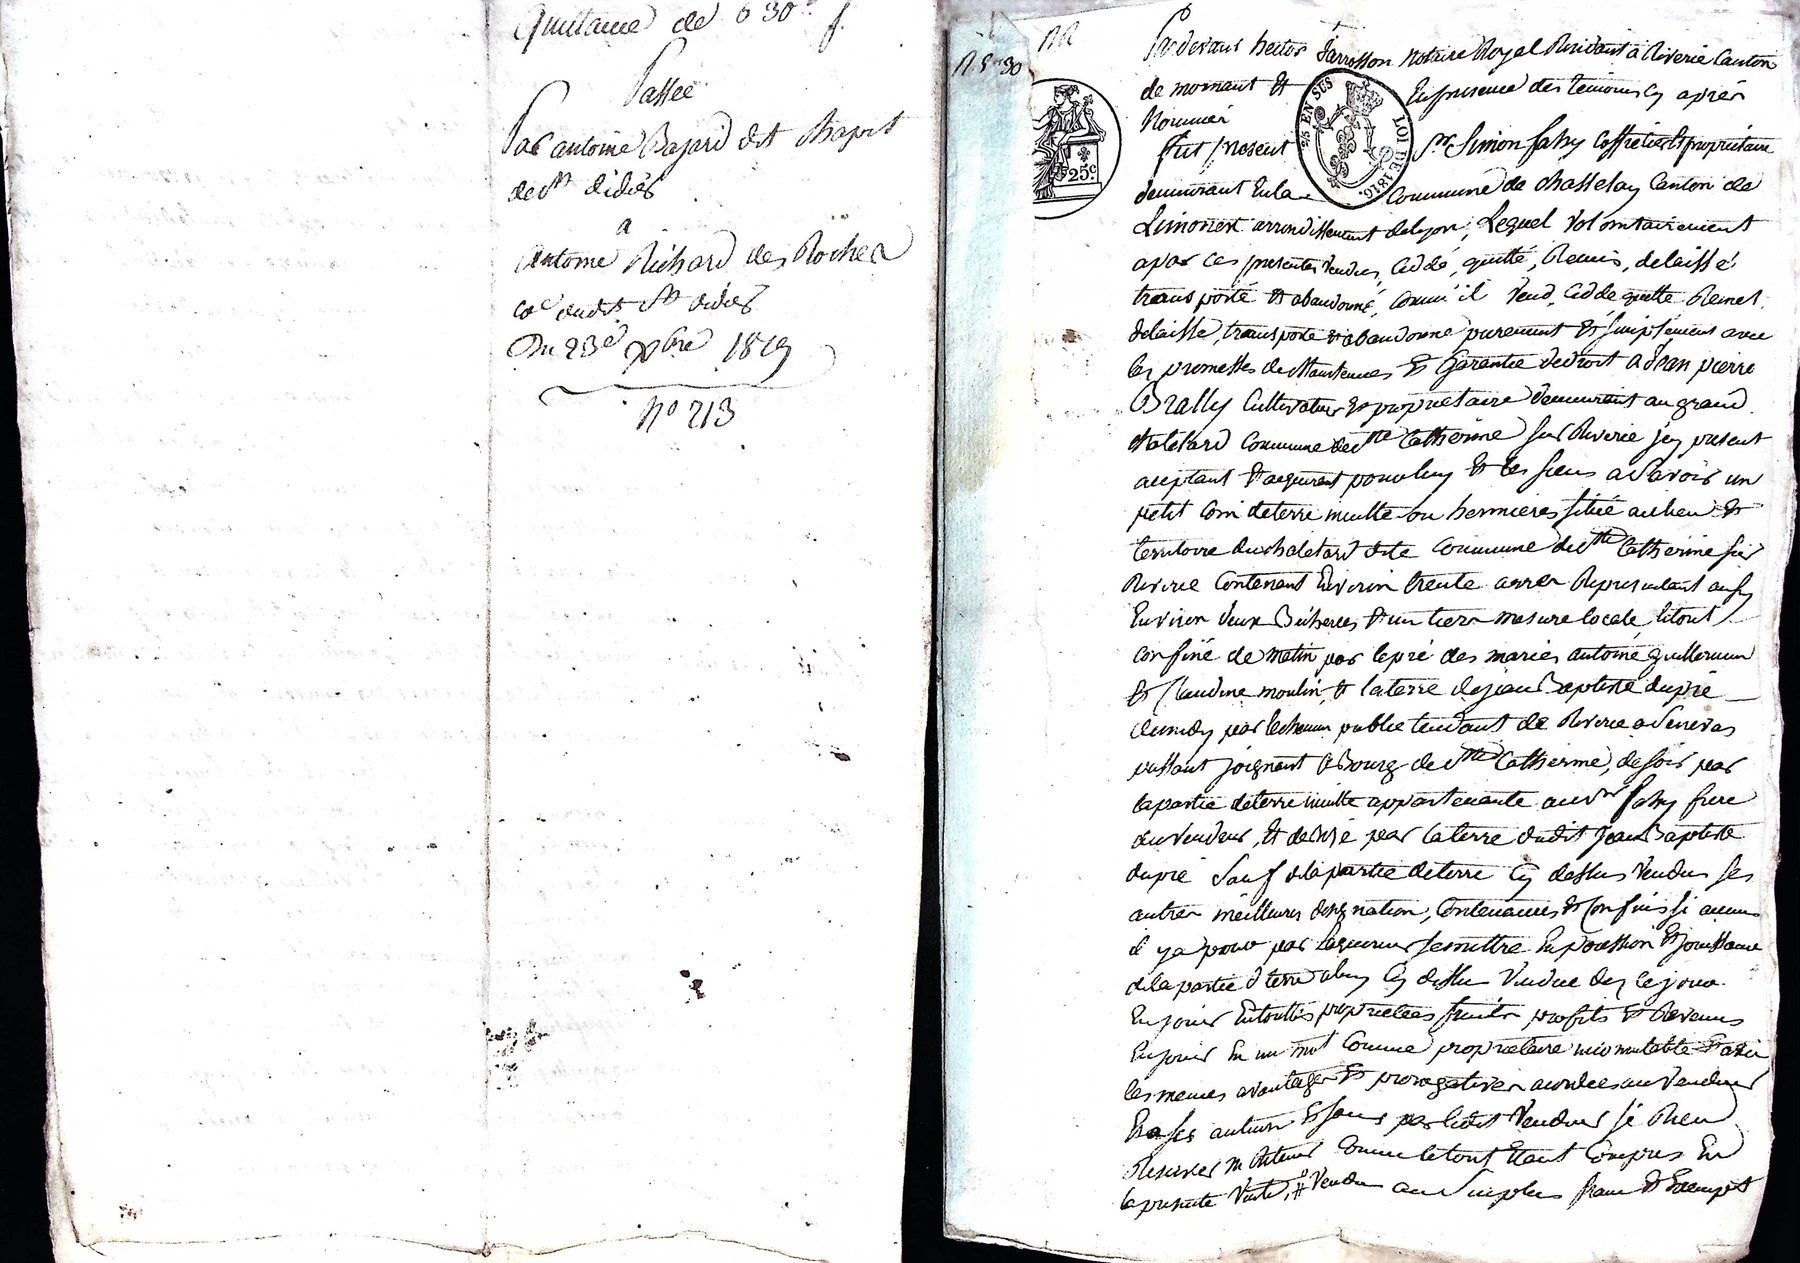 Quittance de 630 f.
Passée
Par antoine Bajard dit Chapot
de St didier
a
Antoine Richard des Roches
Coe dudit St didier
Du 23e Xbre 1819
No 213
Pardevant hector Jarrosson Notaire Royal Résidant à Riverie Canton
de mornant Et En presence des temoins Cy après
Nommés
fut present Sr Simon fahy Coffretier Et propriétaire
demeurant En la Commune de Chasselay Canton de
Limonest arrondissement de Lyon, Lequel volontairement
a par ces presentes Vendu, Cédé, quitté, Remis, delaissé
transporté Et abandonné, Comm'il Vend, Cedde, quitte, Remet,
delaisse, transporte Et abandonne purement Et simplement avec
les promesses de Maintenues Et Garantie de droit a Jean pierre
Brally Cultivateur Et propriétaire demeurant au grand
Chatelard Commune de Ste Catherine sur Riverie icy present
aceptant Et acquerant pour luy Et les siens a Savoir un
petit Coin de terre inculte ou hermieres situé au lieu Et
territoire du Chatelard dite Commune de Ste Catherine sur
Riverie Contenant Environ trente ares Representant aussy
Environ deux Bicherées Et un tiers mesure locale, le tout
Confiné de matin par le pré des mariés antoine guillermin
Et Claudine moulin, Et la terre de jean Baptiste dupré
de midy par le chemin public tendant de Riverie a
passant joignant le Bourg de Ste Catherine, de soir par
la partie de terre inculte appartenante au Sr fahy frere
du Vendeur, Et de Bize par la terre dudit Jean Baptiste
dupré Sauf de la partie de terre Cy dessus Vendue ses
autres meilleures designation, Contenances Et Confins si aucuns
il y a pour par l'aquereur se mettre En possession Et jouissance
de la partie de terre a luy Cy dessus Vendue des ce jour
En jouir En touttes proprietées fruits profits Et Revenus
En jouir En un mot Comme propriétaire incommutable Et avec
les memes avantages Et prerogatives acordées au Vendeur
Et a ses auteurs Et sans par ledit Vendeur se Rien
Reserver ni Retenir Comme le tout Etant Compris En
la presente Vente, Vendu au Surplus franc Et Exempt
25c.
2/5 EN SUS LOI DE 1816.